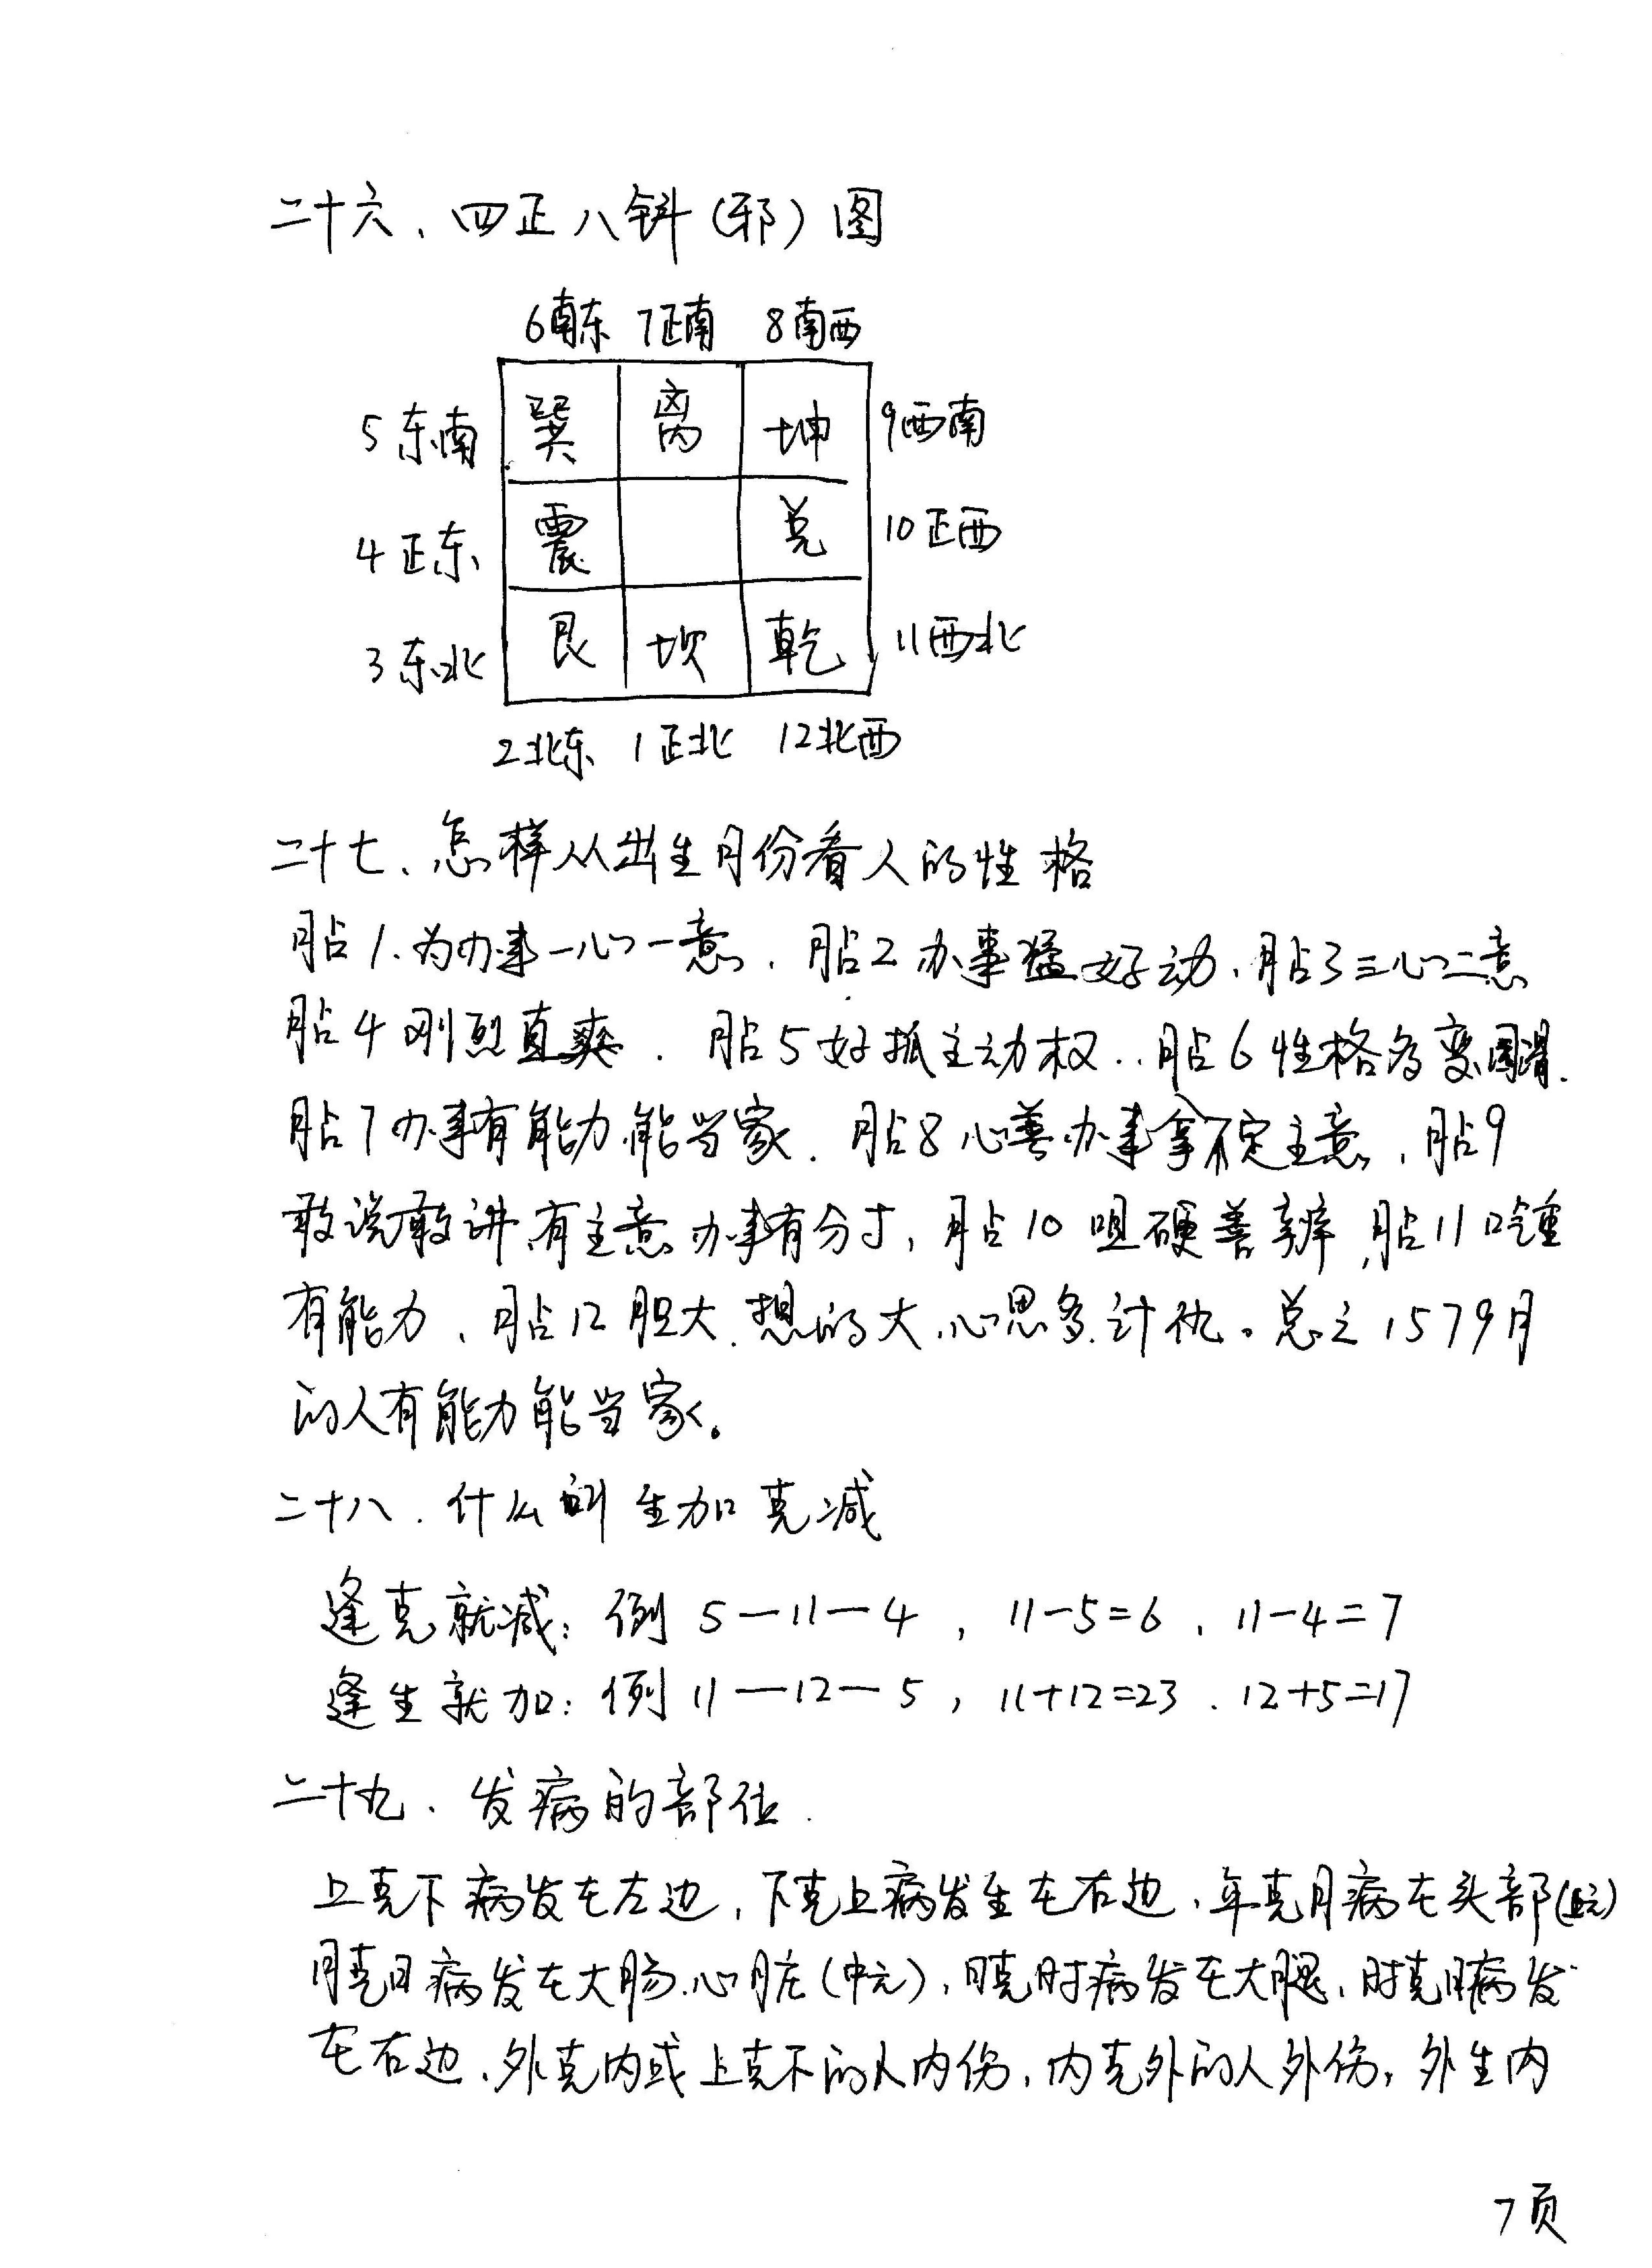 二十六、四正八斜(邪)图
6南东 7正南 8南西
5东南 巽 离 坤 9西南
4正东 震 兑 10正西
3东北 艮 坎 乾 11西北
2北东 1正北 12北西
二十七、怎样从出生月份看人的性格
月占1、为办事一心一意、月占2办事猛好动、月占3三心二意
月占4刚烈直爽. 月占5好抓主动权..月占6性格多变圆滑.
月占7办事有能力能当家. 月占8心善办事拿不定主意、月占9
敢说敢讲有主意办事有分寸, 月占10咀硬善辩,月占11口重
有能力、月占12胆大.想的大.心思多.计仇。总之1579月
的人有能力能当家。
二十八.什么叫生加克减
逢克就减: 例 5—11—4, 11-5=6、11-4=7
逢生就加: 例 11—12—5, 11+12=23. 12+5=17
二十九、发病的部位.
上克下病发在左边,下克上病发生在右边、年克月病在头部(上元)
月克日病发在大肠.心脏(中元),日克时病发在大腿、时克日病发
在右边、外克内或上克下的人内伤,内克外的人外伤,外生内
7页